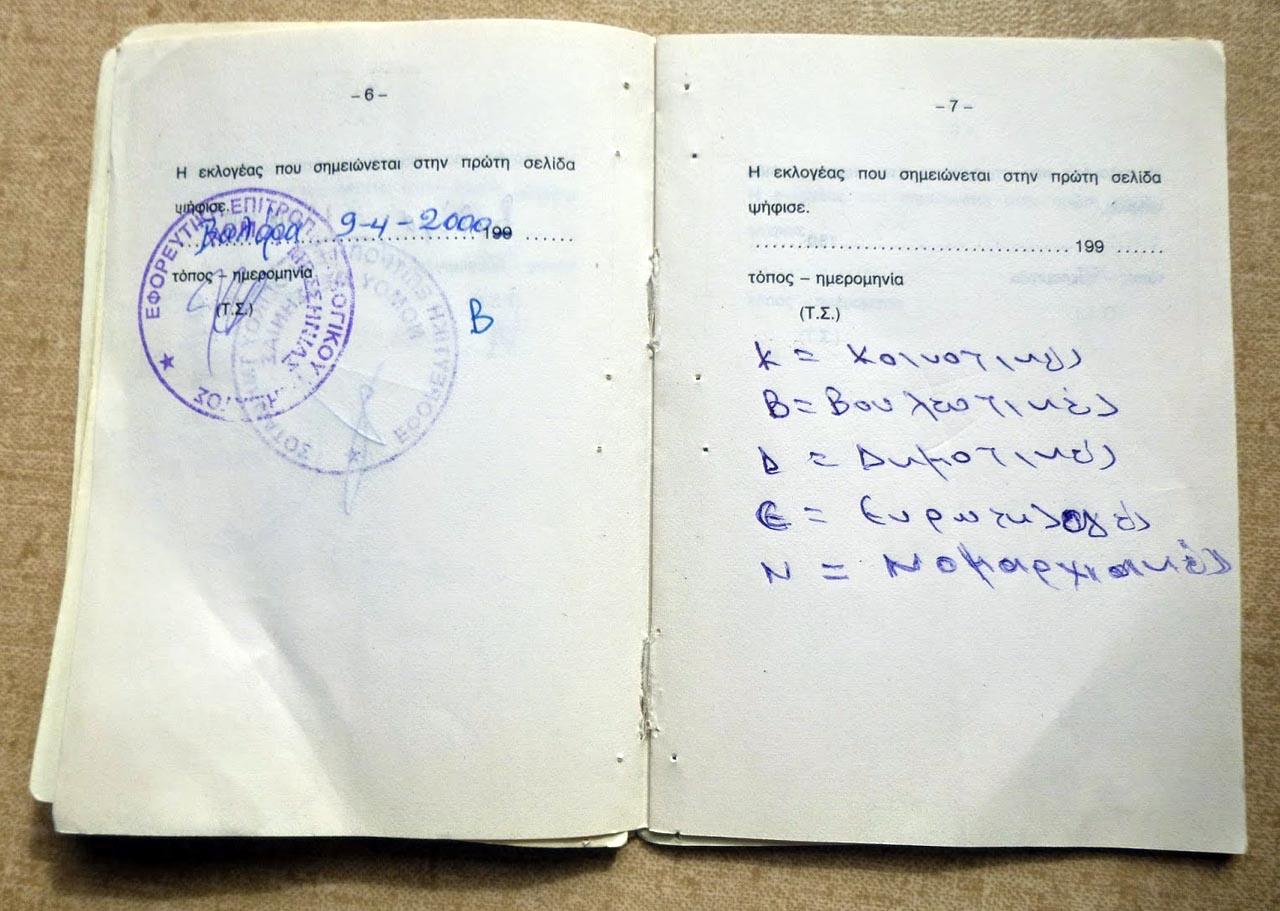 – 6 –
Η εκλογέας που σημειώνεται στην πρώτη σελίδα
ψήφισε.
9-4-2000 199 ......
τόπος – ημερομηνία
(Τ.Σ.)
Β
ΕΦΟΡΕΥΤΙΚΗ ΕΠΙΤΡΟΠ
ΜΕΣΣΗΝΙΑΣ
– 7 –
Η εκλογέας που σημειώνεται στην πρώτη σελίδα
ψήφισε.
.................................................. 199 ......
τόπος – ημερομηνία
(Τ.Σ.)
Κ = Κοινοτικές
Β = Βουλευτικές
Δ = Δημοτικές
Ε = Ευρωεκλογές
Ν = Νομαρχιακές